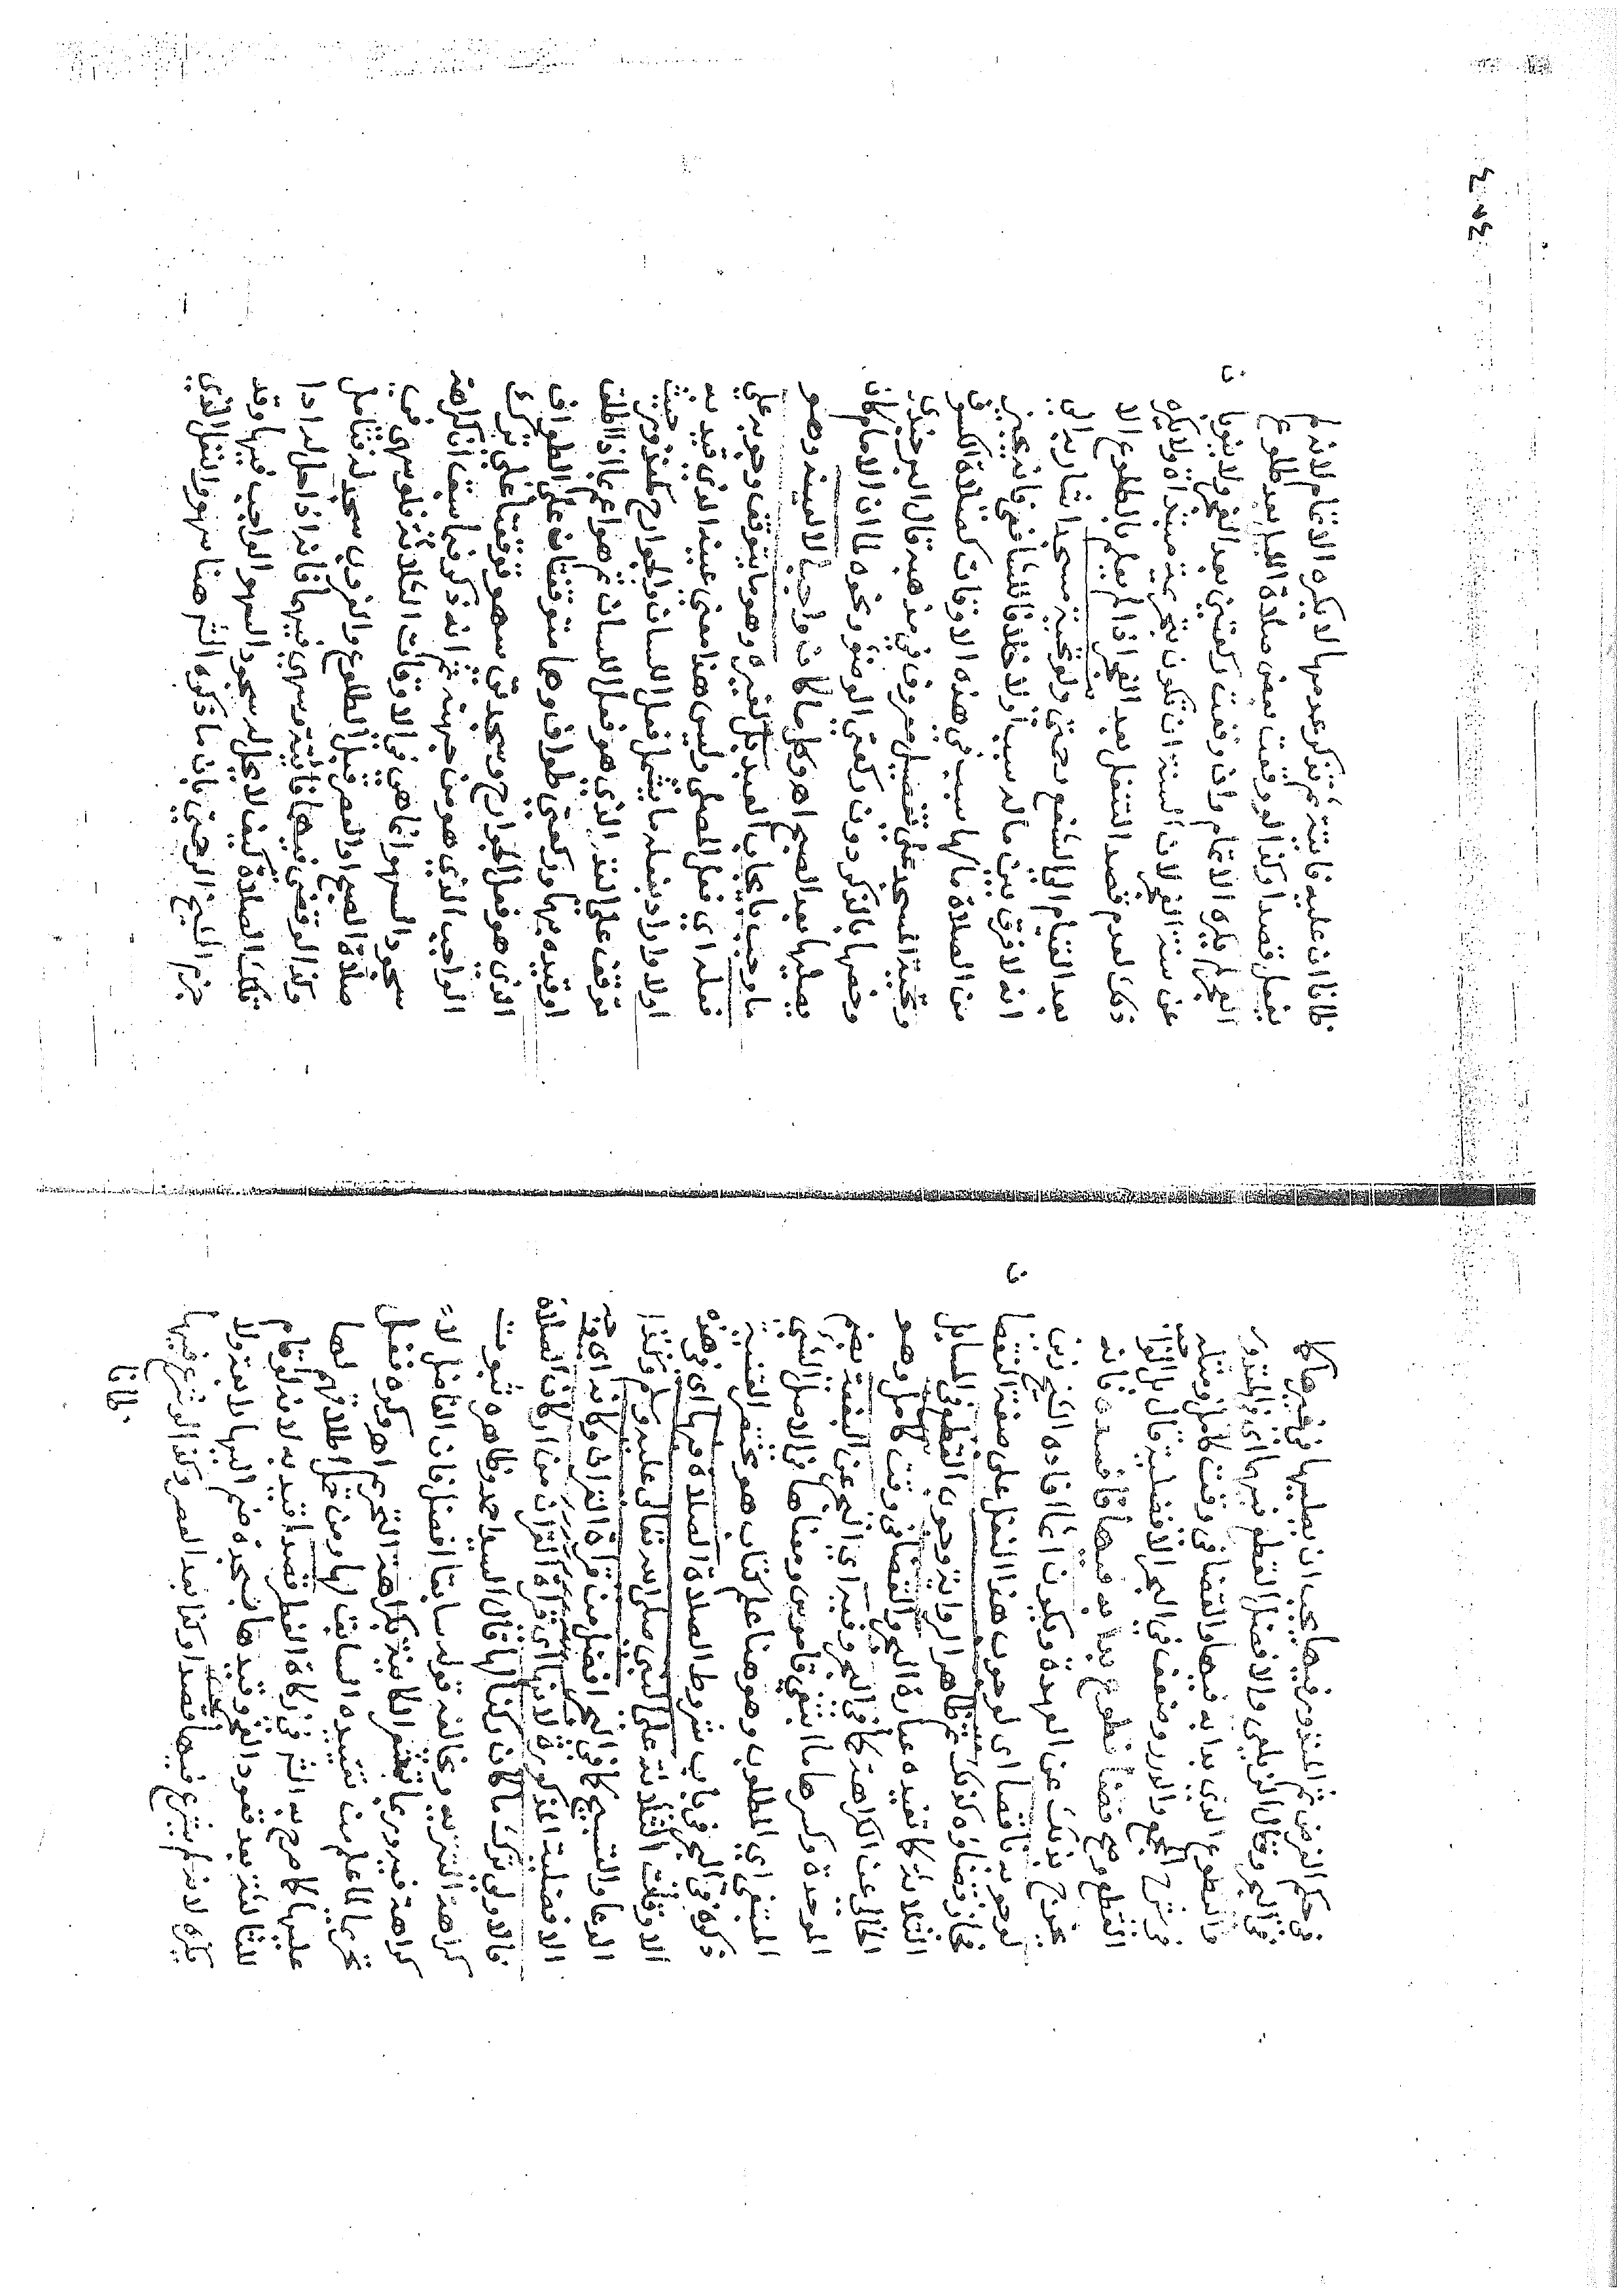 في حكم الفرض ثم المنذور فيها يجب ان يصليها في غيرها كما
في البحر وقال الزيلعي والافضل القطع فيهما اي في المنذور
والتطوع الذي بدا به فيها والقضا في وقت كامل ومثله
في شرح المجمع والدرر وضعف في البحر الافضلية قال بل
القطع وصح قضا تطوع بدا به فيها فافسده فانه
يخرج بذلك عن العهدة ويكون اثما افاده الشيخ زين
لوجوبه ناقصا اي لوجوب هذا النفل على صفة النقصا
فجاز قضاؤه كذلك ثم ظاهر الرواية وجوب القطع في المسايل
الثلاث كما تفيده عبارة البحر والقضا في وقت كامل وهو
الخالي عن الكراهة كما في البحر وفيه اي البحر عن البغية بضم
الموحدة وكسرها ما ابتغي قاموس ومعناها في الاصل الشي
المبتغى اي المطلوب وهو هنا علم كتاب هو مختصر القنية
ذكره في البحر في باب شروط الصلاة الصلاة فيها اي في هذه
الاوقات الثلاثة على النبي صلى الله تعالى عليه وسلم وكذا
الدعا والتسبيح كما في البحر افضل من قراة القران وكانه اي
الافضلية المذكورة لانها اي قراة القران من اركان الصلاة
فالاولى ترك ما كان ركنا لها قال السيد احمد وظاهره ثبوت
كراهة التنزيه ويخالفه قوله سابقا افضل فان الفاضل لا
كراهة فيه وربما يشعر بكراهة التحريم اه وكره نفل
تحريما لما علم من تقييده السابق لها ومن محل اطلاقهم لها
عليها كما صرح به قصدا قيد به لانه لو قام
للثالثة بعد قعود الفجر وقيدها بسجدة ضم اليها رابعة ولا
يكره لانه لم يشرع فيها قصدا وكذا بعد العصر وكذا لو شرع فيها
ظانا
ظانا ان عليه فائتة ثم تذكر عدمها لا يكره الاتمام لانه لم
يفعل قصدا وكذا لو وقعت بعض صلاة الليل بعد طلوع
الفجر لم يكره الاتمام وان وقعت ركعتين بعد الفجر ولا ينوبا
عن سنة الفجر لان السنة ان تكون بتحريمة مبتداة ولا يكره
ذلك لعدم قصد التنفل بعد الفجر اذا لم يعلم بالطلوع الا
بعد القيام الى الشفع بحر ولو تحية مسجد اشار به الى
انه لا فرق بين ماله سبب او لا خلافا للشافعي فانه يجيز
من الصلاة ما لها سبب في هذه الاوقات كصلاة الكسوف
وتحية المسجد على تفصيل معروف في مذهبه قال البرجندي
وخصها بالذكر دون ركعتي الوضو ونحوه لما ان الامام كان
يصليها بعد الصبح اه وكل ما كان واجبا لا لعينه وهو
ما وجب بايجاب العبد بل لغيره وهو ما يتوقف وجوبه على
فعله اي فعل المصلي وليس هذا معنى عينه الذي قيد به
اولا واراد بفعله ما يشمل فعل اللسان والجوارح
توقف على النذر الذي هو فعل اللسان ثم هو اعم ما اذا اطلق
او قيده بها وركعتي طواف وهما متوقفتان على الطواف
الذي هو فعل الجوارح وسجدتي سهو توقفتا على ترك
الواجب الذي هو من جهته ثم انه ذكر فيما سبق ان كراهة
سجود السهو انما هي في الاوقات الثلاثة فلو سهى في
صلاة الصبح او العصر قبل الطلوع والغروب سجد له فتامل
وكذا لو قضى فيهما فائتة وسهى فيها فانه اذا حل له ادا
تلك الصلاة كيف لا يحل له سجود السهو الواجب فيها وقد
جزم الشيخ الرحمتي بان ما ذكره الشرح هنا سهو والنفل الذي